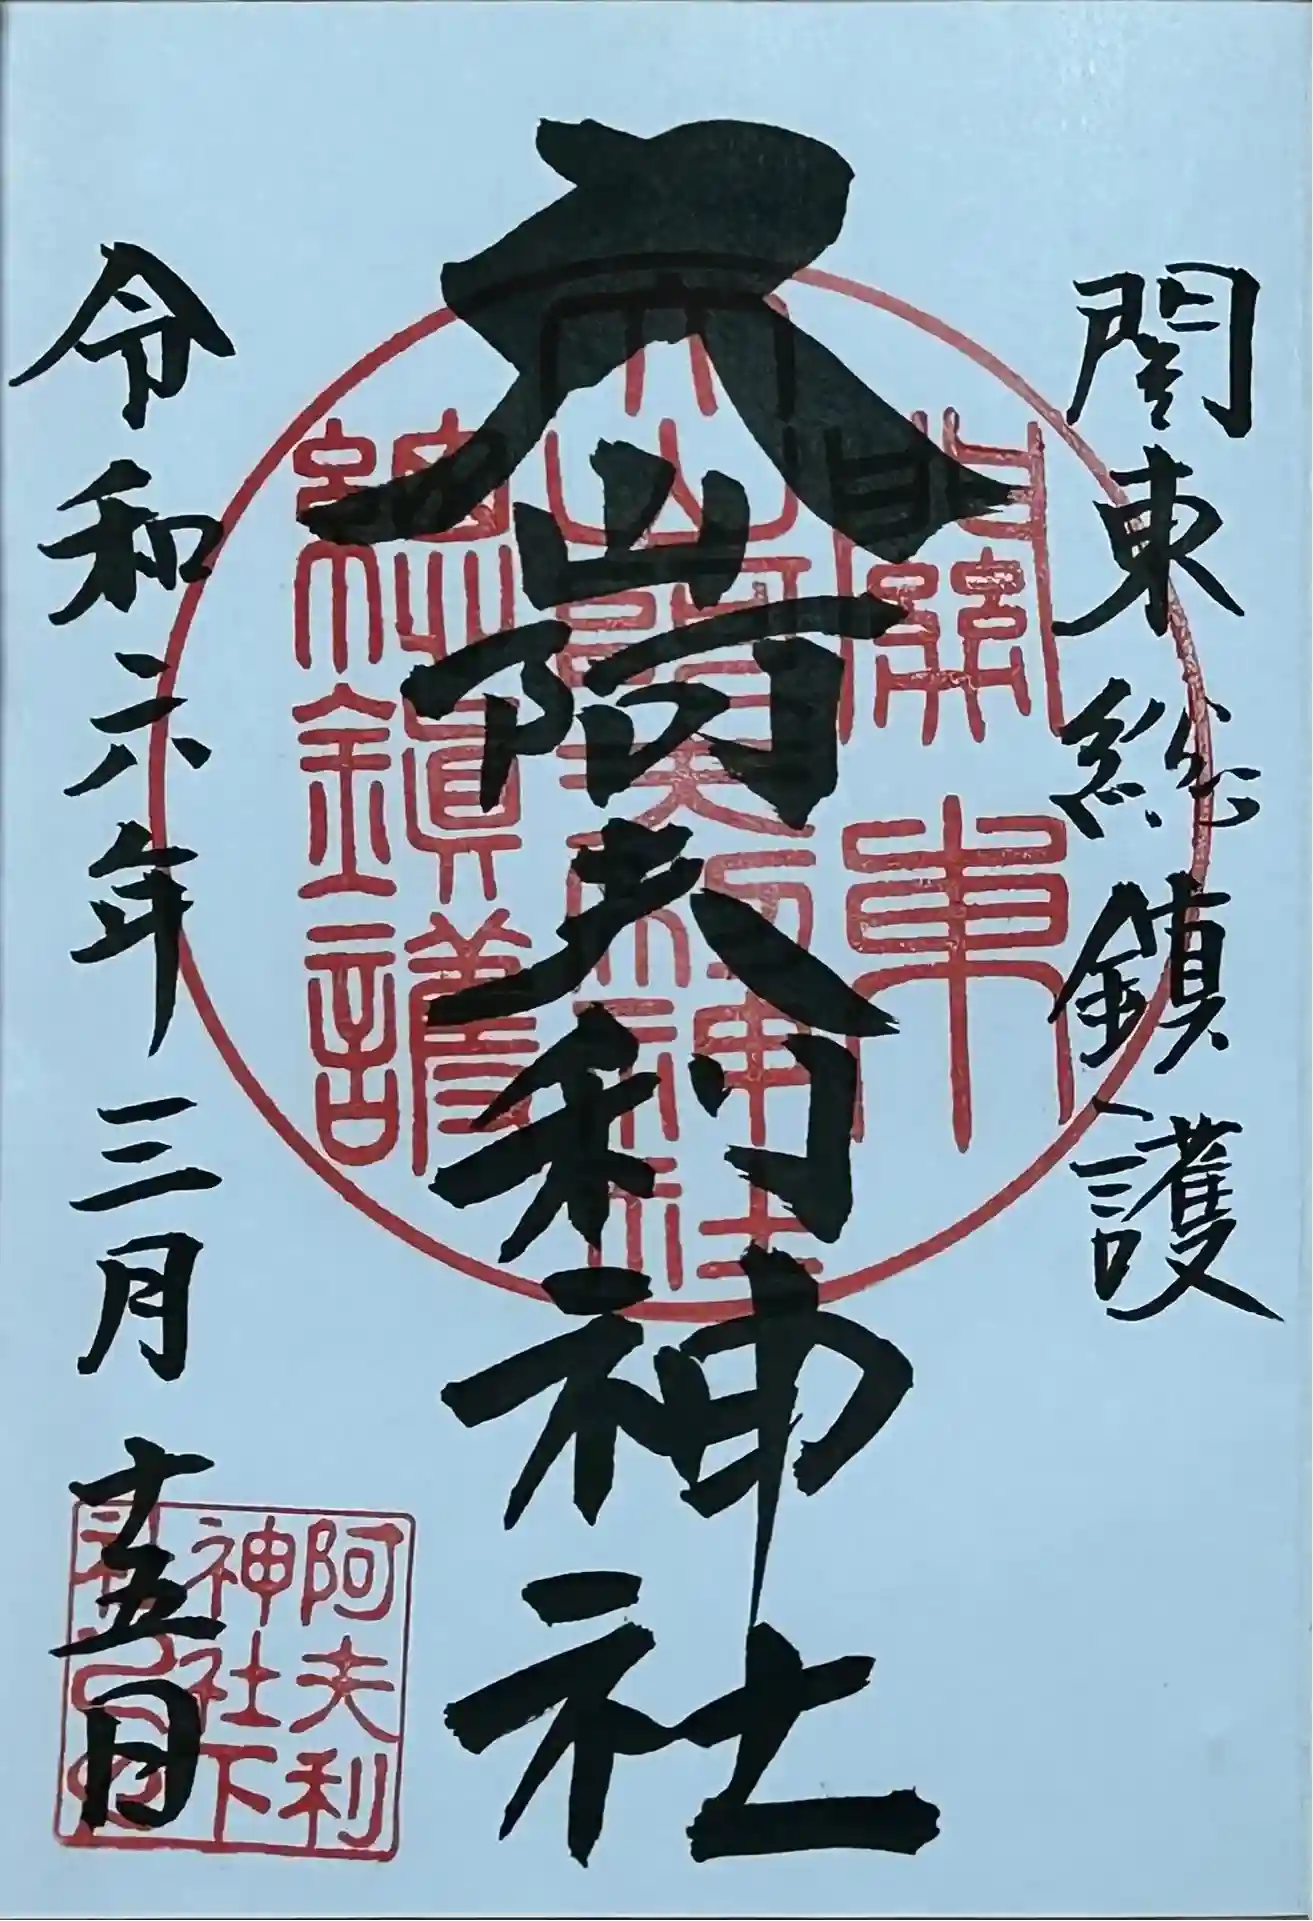 関東総鎮護
大山阿夫利神社
令和六年三月十五日
關東
大山阿夫利神社
総鎮護
阿夫利
神社下
社